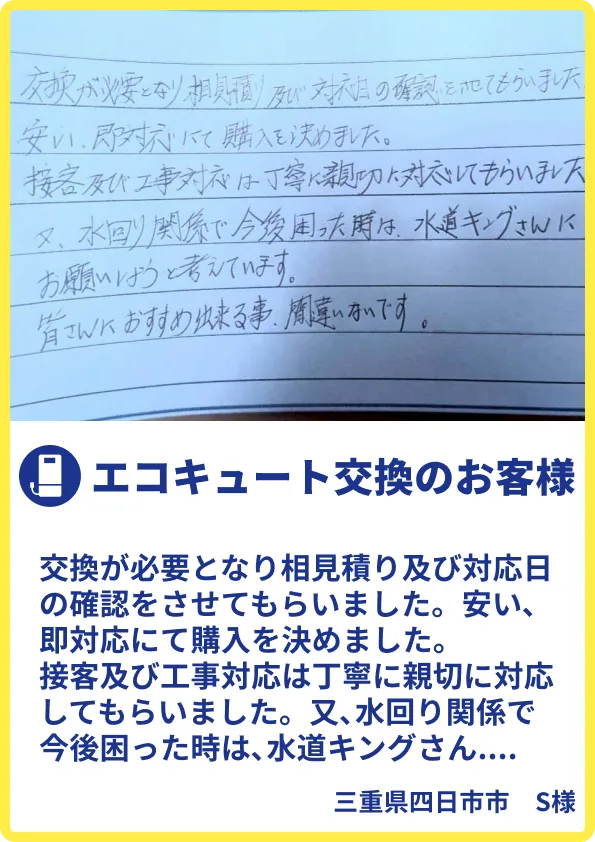 交換が必要となり相見積り及び対応日の確認をさせてもらいました
安い、即対応にて購入を決めました。
接客及び工事対応は丁寧に親切に対応してもらいました
又、水回り関係で今後困った時は、水道キングさんに
お願いしようと考えています。
皆さんにおすすめ出来る事、間違いないです。
エコキュート交換のお客様
交換が必要となり相見積り及び対応日
の確認をさせてもらいました。安い、
即対応にて購入を決めました。
接客及び工事対応は丁寧に親切に対応
してもらいました。又、水回り関係で
今後困った時は、水道キングさん....
三重県四日市市 S様